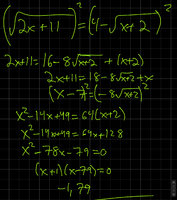 (√2x+11)² = (4-√x+2)²
2x+11 = 16-8√x+2 + (x+2)
2x+11 = 18-8√x+2+x
(x-7)² = (-8√x+2)²
x²-14x+49 = 64(x+2)
x²-14x+49 = 64x+128
x²-78x-79=0
(x+1)(x-79)=0
-1, 79